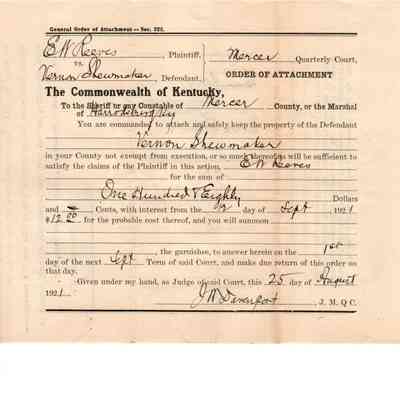 General Order of Attachment—Sec. 221.
E W Reeves, Plaintiff, Mercer Quarterly Court,
vs.
Vernon Shewmaker, Defendant, ORDER OF ATTACHMENT
The Commonwealth of Kentucky,
To the Sheriff or any Constable of Mercer County, or the Marshal
of Harrodsburg Ky
You are commanded to attach and safely keep the property of the Defendant
Vernon Shewmaker
in your County not exempt from execution, or so much thereof as will be sufficient to
satisfy the claims of the Plaintiff in this action, E W Reeves
for the sum of
One Hundred & Eighty Dollars
and Cents, with interest from the day of Sept 1921
$12 00 for the probable cost thereof, and you will summon
the garnishee, to answer herein on the 1st
day of the next Sept Term of said Court, and make due return of this order on
that day.
Given under my hand, as Judge of said Court, this 25 day of August
1921. J W Davenport, J. M. Q. C.